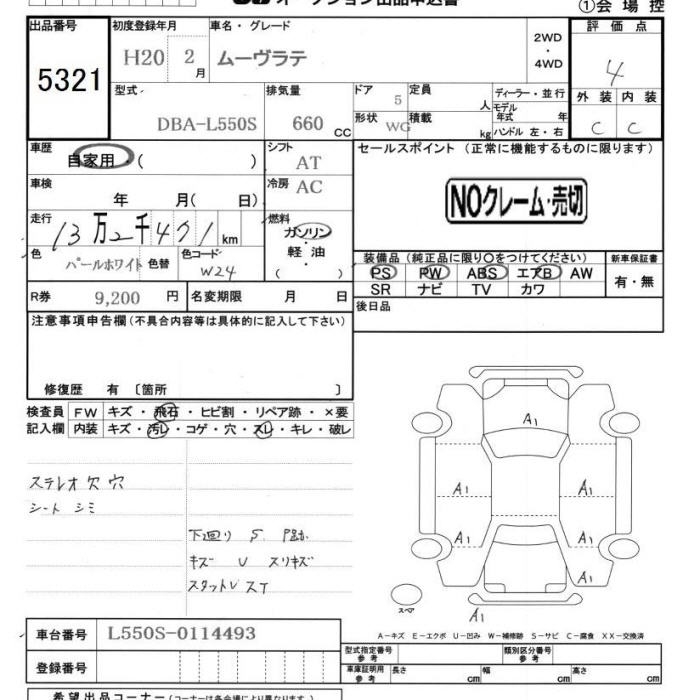 オークション出品申込書
①会場控
出品番号 初度登録年月 車名・グレード 2WD・4WD 評価点
5321 H20 2月 ムーヴラテ 4
型式 排気量 ドア 定員 ディーラー・並行 外装 内装
DBA-L550S 660 CC 5 人 モデル年式 年 C C
形状 積載
WG kg ハンドル 左・右
車歴 シフト セールスポイント (正常に機能するものに限ります)
自家用 ( ) AT
車検 冷房 AC
年 月( 日) NOクレーム・売切
走行 燃料
13万2千471km ガソリン・軽油 ( )
色 色替 色コード 装備品 (純正品に限り○をつけてください) 新車保証書
パールホワイト W24 PS PW ABS エアB AW 有・無
SR ナビ TV カワ
R券 9,200 円 名変期限 月 日 後日品
注意事項申告欄 (不具合内容等は具体的に記入して下さい)
修復歴 有 〔箇所 〕
検査員 FW キズ・飛石・ヒビ割・リペア跡・×要
記入欄 内装 キズ・汚レ・コゲ・穴・スレ・キレ・破レ
A1
ステレオ欠 穴
シート シミ
A1 A1
下廻り S
キズ U スリキズ
A1 A1
スタットレス T
スペア
A1
A-キズ E-エクボ U-凹み W-補修跡 S-サビ C-腐食 XX-交換済
車台番号 L550S-0114493
型式指定番号 参考 類別区分番号 参考
登録番号 車庫証明用 参考 長さ cm 幅 cm 高さ cm
希望出品コーナー (コーナーは各会場により異なります。)